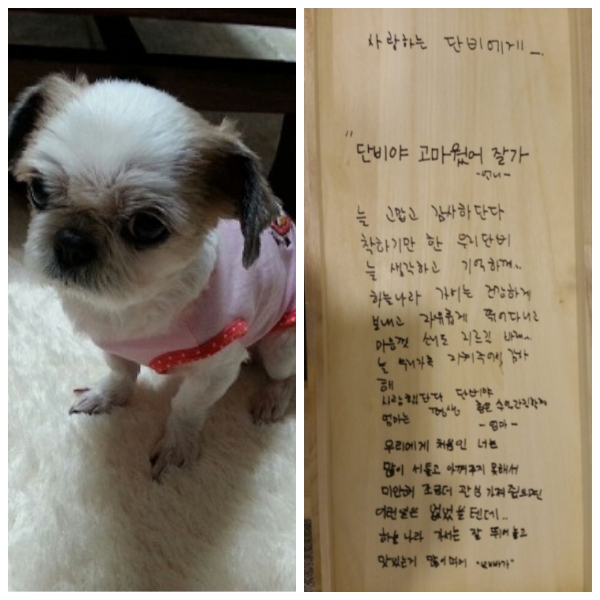 사랑하는 단비에게 _.
" 단비야 고마웠어 잘가
-언니-
늘 고맙고 감사하단다
착하기만 한 우리단비
늘 생각하고 기억하께..
하늘나라 가서는 건강하게
보내고 자유롭게 뛰어다니고
마음껏 소리도 지르길 바래..
늘 우리가족 지켜주에 감사
해
사랑한단다 단비야
엄마는
-엄마-
우리에게 처음인 너는
많이 서툴고 아껴주지 못해서
미안해 조금더 관심 가져줬으면
없었을 텐데...
하늘나라 가서는 잘 뛰어놀고
맛있는거 많이먹어